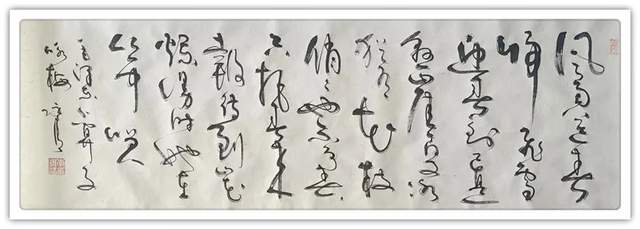 风雨送春
归飞雪
迎春到已是
悬崖百丈冰
犹有花枝
俏〻也不争春
只把春来
报待到山花
烂漫时她在
丛中笑
毛泽东卜算子
咏梅